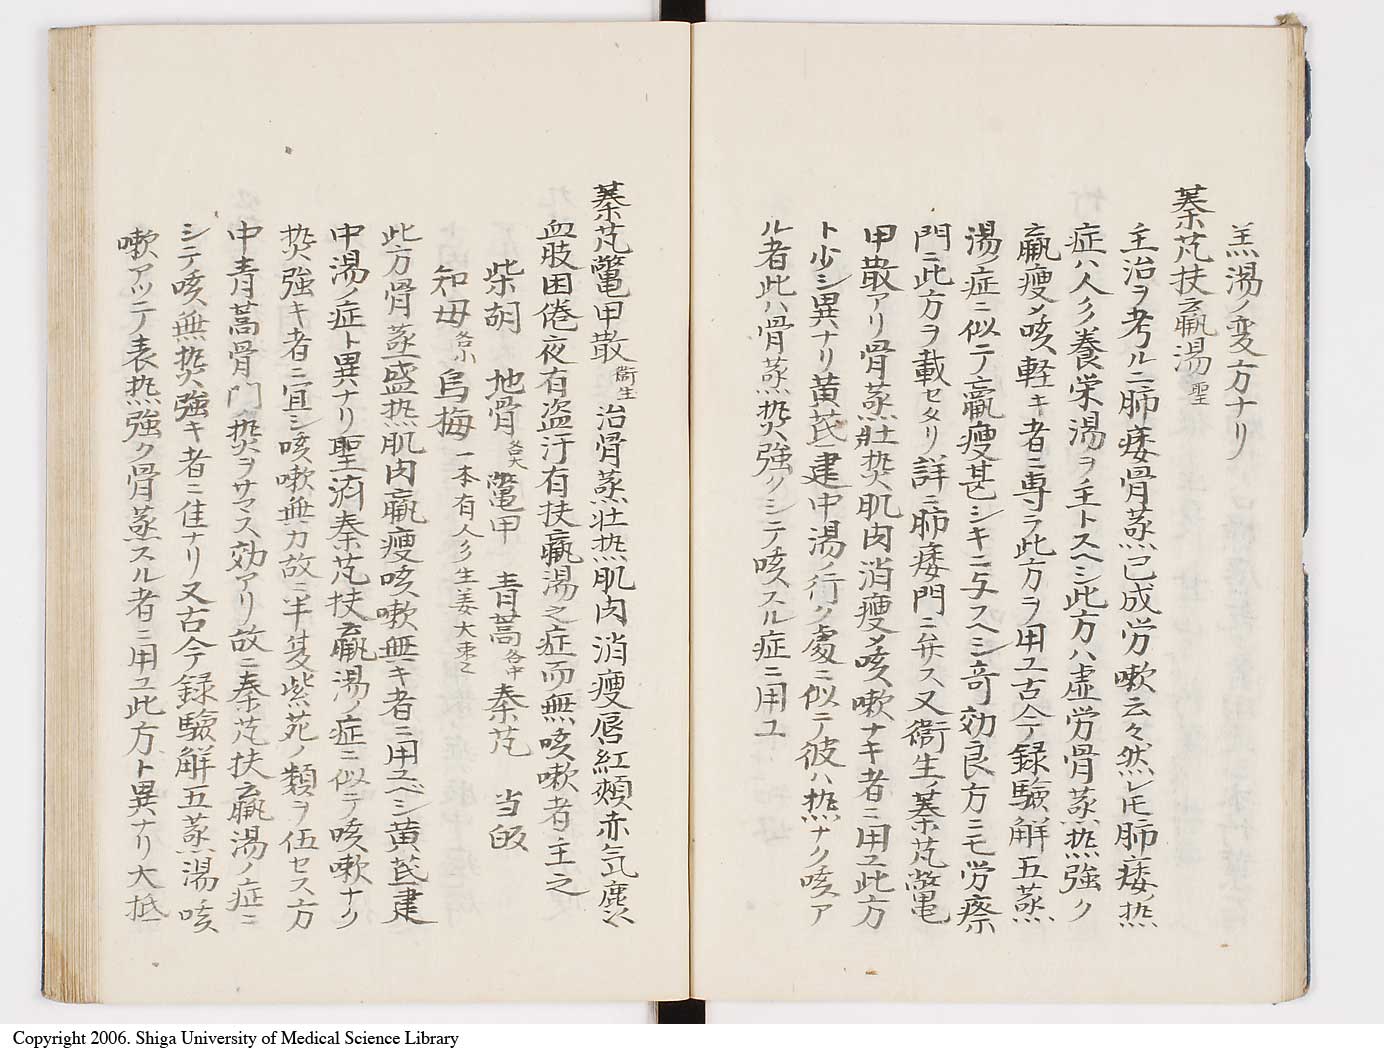 羔湯ノ変方ナリ
秦芃扶羸湯 聖
主治ヲ考ルニ肺痿骨蒸已成労嗽云々然レ𪜈肺痿ノ热
症ハ人参養栄湯ヲ主トスヘシ此方ハ虚労骨蒸热強ク
羸瘦〆咳軽キ者ニ専ラ此方ヲ用ユ古今録驗解五蒸
湯症ニ似テ羸瘦甚シキニ与スヘシ奇効良方ニモ労瘵
門ニ此方ヲ載セタリ詳ニ肺痿門ニ弁ス又衛生ノ秦芃鱉
甲散アリ骨蒸壮热肌肉消瘦〆咳嗽ナキ者ニ用ユ此方
ト少シ異ナリ黄芪建中湯ノ行ク處ニ似テ彼ハ热ナク咳ア
ル者此ハ骨蒸热強クシテ咳スル症ニ用ユ
秦芃鱉甲散 衛生 治骨蒸壮热肌肉消瘦唇紅頰赤気麄
血肢困倦夜有盗汗有扶羸湯之症而無咳嗽者主之
柴胡 地骨各大 鱉甲 青蒿各中 秦芃 当皈
知母各小 烏梅 一本有人参生姜大枣之
此方骨蒸盛热肌肉羸瘦咳嗽無キ者ニ用ユベシ黄芪建
中湯ノ症ト異ナリ聖済秦芃扶羸湯ノ症ニ似テ咳嗽ナク
热強キ者ニ宜シ咳嗽無カ故ニ半夏紫苑ノ類ヲ伍セス方
中青蒿骨門热ヲサマス効アリ故ニ秦芃扶羸湯ノ症ニ
シテ咳無热強キ者ニ佳ナリ又古今録驗解五蒸湯咳
嗽アツテ表热強ク骨蒸スル者ニ用ユ此方ト異ナリ大抵
Copyright 2006. Shiga University of Medical Science Library